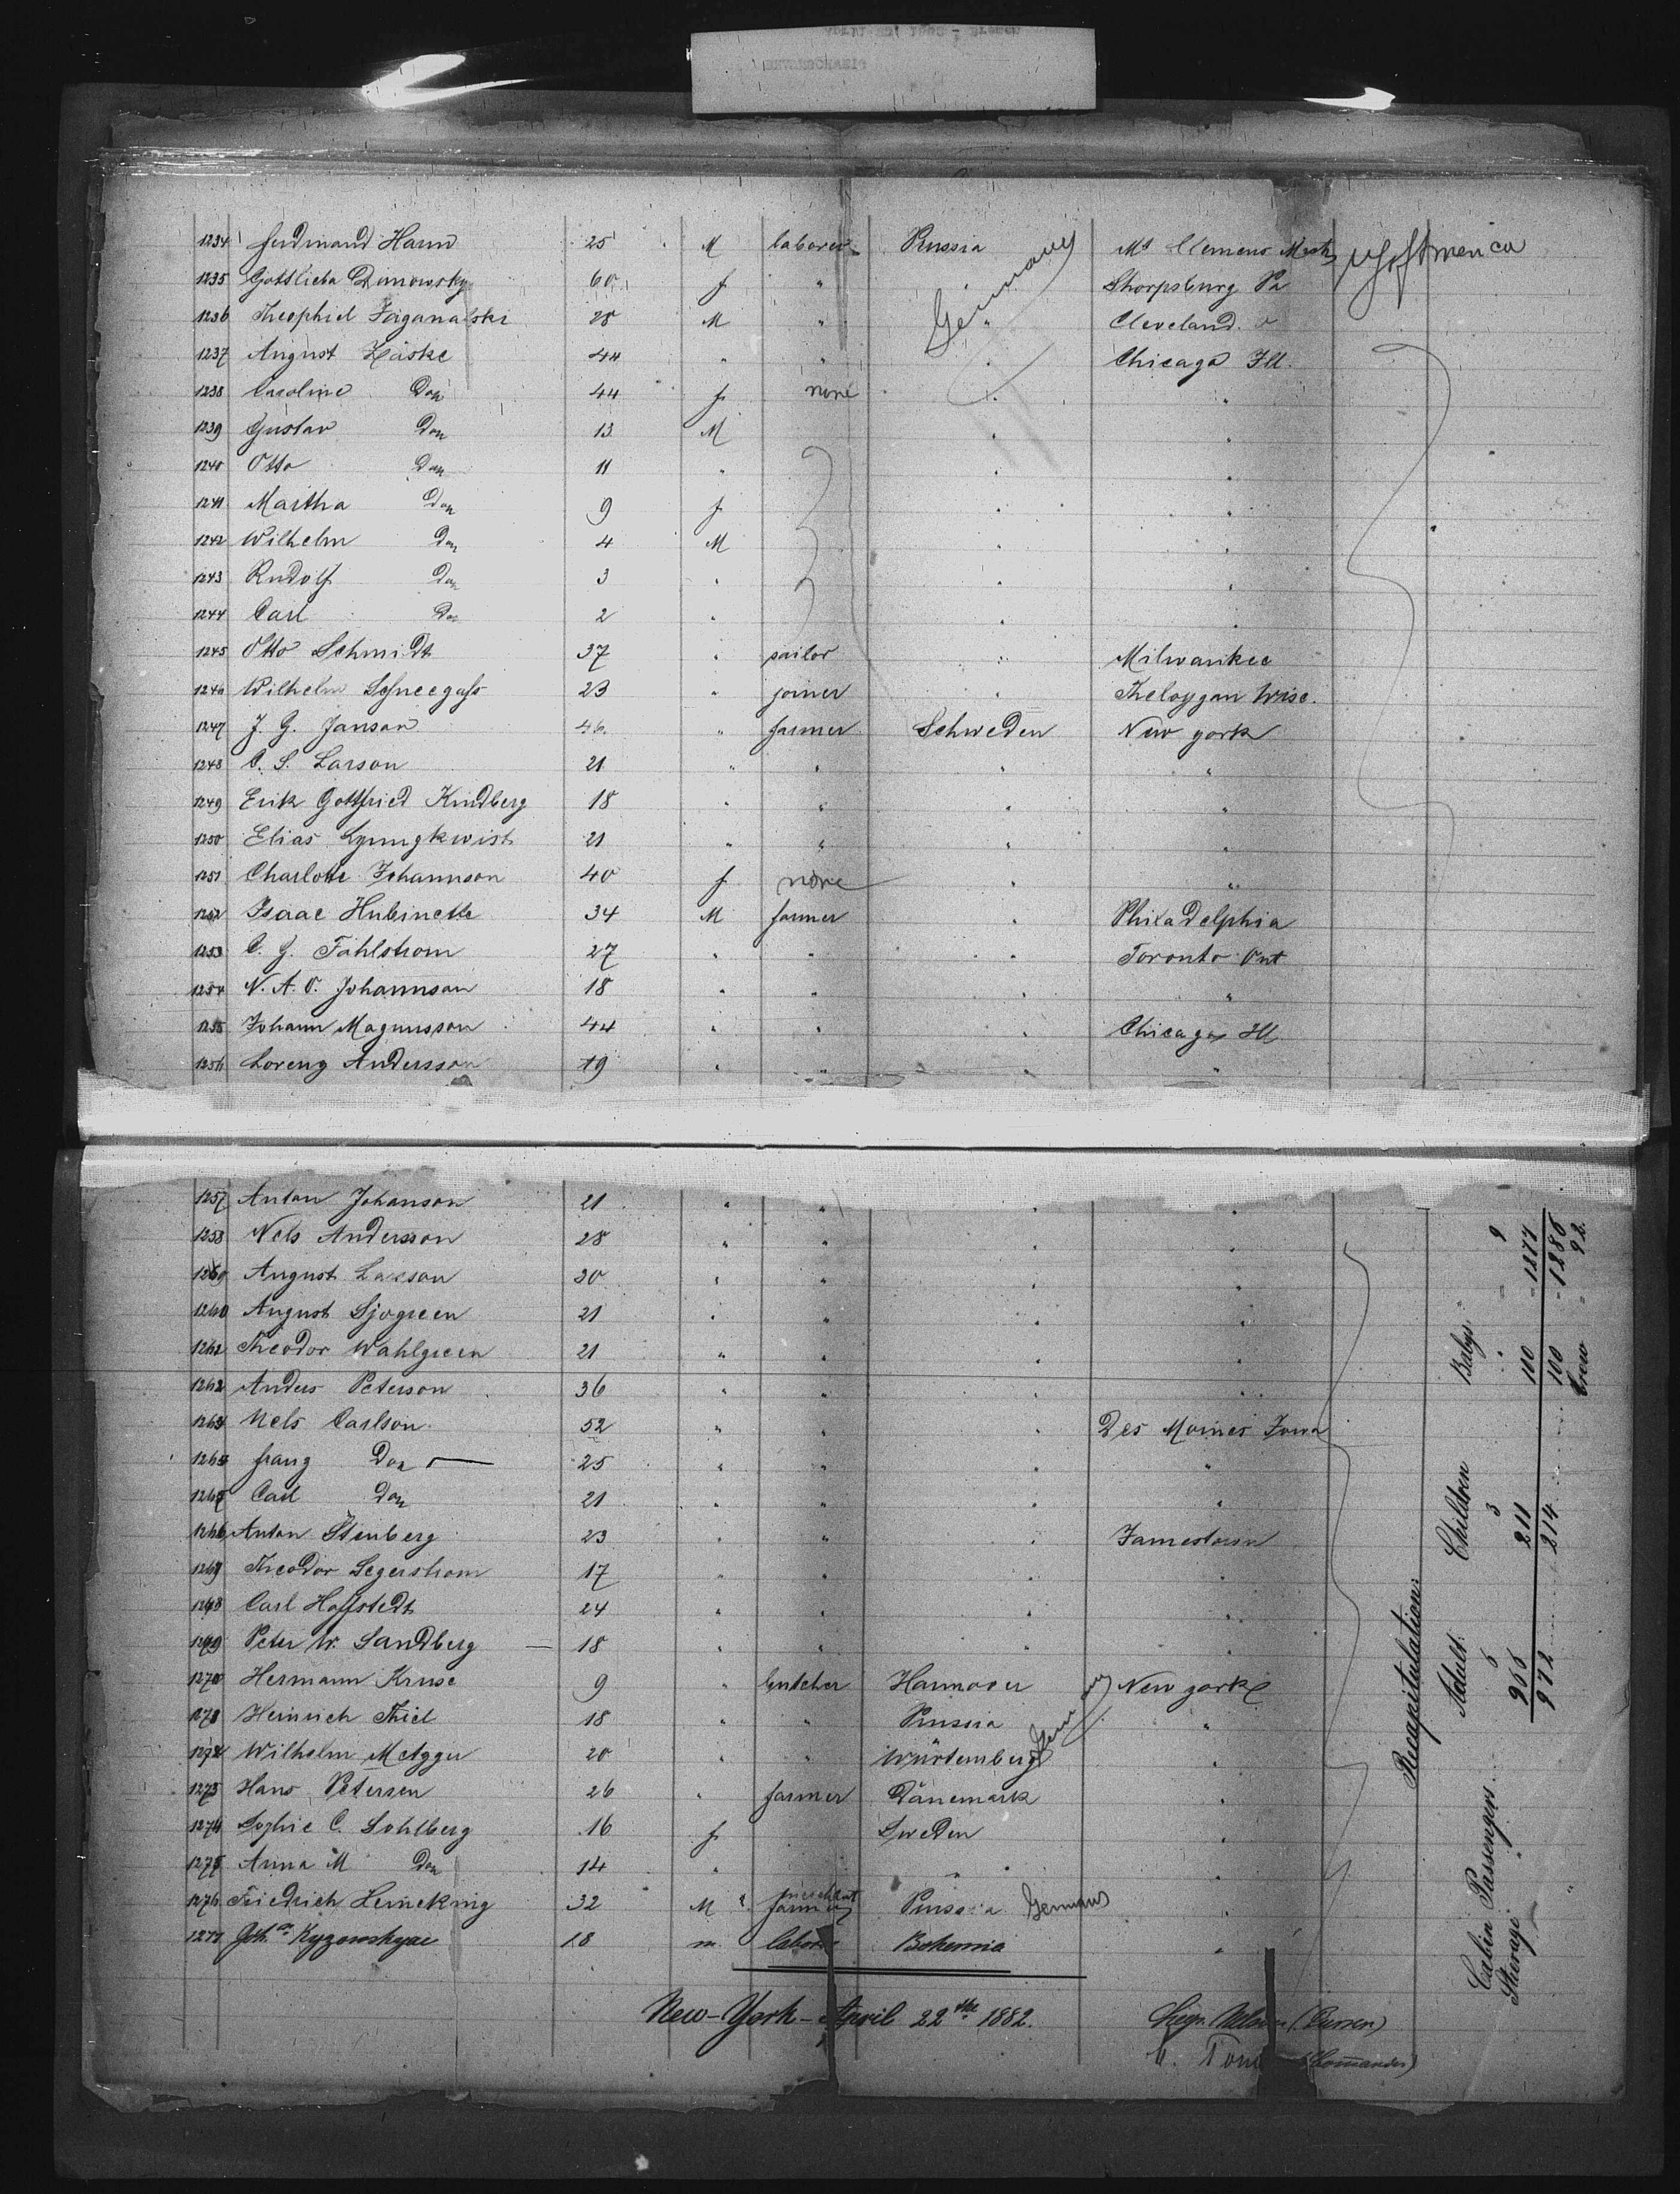 1234 Ferdinand Hamn 25 M laborer Prussia Germany Mt Clemens Mich U S of America
1235 Gottlieba Dimowsky 60 f " Sharpsburg Pa
1236 Theophiel Jaganalski 28 M " " Cleveland. O
1237 August Häske 44 " " " Chicago Ill.
1238 Caroline Do 44 f none " "
1239 Gustav Do 13 M " "
1240 Otto Do 11 " " "
1241 Martha Do 9 f " "
1242 Wilhelm Do 4 M " "
1243 Rudolf Do 3 " " "
1244 Carl Do 2 " " "
1245 Otto Schmidt 37 " sailor " Milwaukee
1246 Wilhelm Schneegass 23 " joiner " Wisc.
1247 J. G. Janson 46 " farmer Schweden New york
1248 C. S. Larson 21 " " " "
1249 Erik Gottfried Kindberg 18 " " " "
1250 Elias Lyungkwist 21 " " " "
1251 Charlotte Johannson 40 f none " "
1252 Isaac Hubinette 34 M farmer " Philadelphia
1253 C. G. Fahlstrom 27 " " " Toronto Ont
1254 N. A. O. Johannson 18 " " " "
1255 Johann Magnusson 44 " " " Chicago Ill
1256 Lorenz Andersson 19 " " " "
1257 Anton Johanson 21 " " " "
1258 Nels Andersson 28 " " " "
1259 August Larson 20 " " " "
1260 August Sjogreen 21 " " " "
1261 Theodor Wahlgreen 21 " " " "
1262 Anders Peterson 36 " " " "
1263 Nels Carlson 52 " " " Des Moines Iowa
1264 Franz Do 25 " " " "
1265 Carl Do 21 " " " "
1266 Anton Stenberg 23 " " " Jamestown
1267 Theodor Segerstrom 17 " " " "
1268 Carl Hoffstedt 24 " " " "
1269 Peter W. Sandberg 18 " " " "
1270 Hermann Kruse 9 " butcher Hannover Germany New york
1271 Heinrich Thiel 18 " " Prussia "
1272 Wilhelm Metzger 20 " " Würtemberg "
1273 Hans Petersen 26 " farmer Dänemark "
1274 Sophie C. Sohlberg 16 f Sweden "
1275 Anna M Do 14 " " "
1276 Friedrich Leineking 32 M " farmer merchant Prussia Germany "
1277 Joh. Kyzowskyae 18 m. labore Bohemia "
New-York - April 22the 1882. (Purser)
(Commander)
Recapitulation:
Adult: Children Babys:
Cabin Passengers 6 3 " " 9
Sterage " 966 211 100 " 1277
" 972 214 100 " 1286
Crew " 92